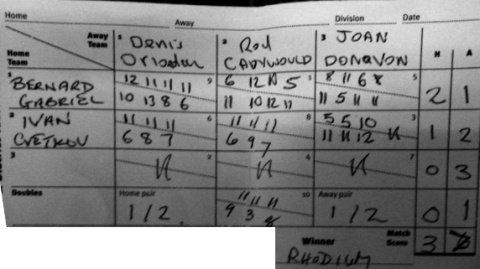 Home Away Division Date
Away Team 1 Denis 2 Rod 3 JOAN H A
Home Team CADYWOULD DONOVON
1 BERNARD 12 11 11 11 9 6 12 10 5 1 8 11 6 8 5
GABRIEL 10 13 8 6 11 10 12 11 11 5 11 11 2 1
2 IVAN 11 11 11 11 11 11 8 5 5 10 3
CVETKOV 6 8 7 6 9 7 11 11 12 1 2
3 2 6 7 0 3
Doubles Home pair 11 11 11 10 Away pair
1/2 9 3 1/2 0 1
Winner Match Score 3
RHODIUM